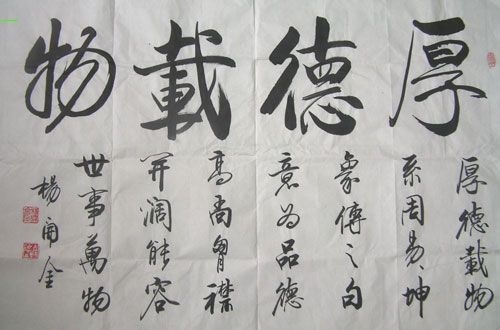 厚德載物
厚德載物
系周易、坤
象傳之句
意为品德
高尚胷襟
开阔能容
世事萬物
楊 金